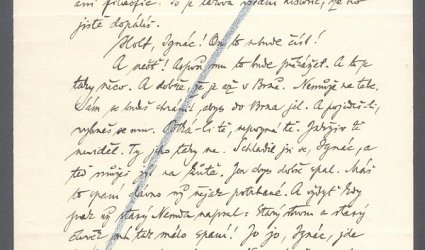 ani filosofie. To je
jistě dopálíš.
Holt, Ignác! On to nebude číst!
A nečti! Aspoň mu to bude překážet. A to je
taky něco. A dobře, že je už v Brně. Nemůže na tebe.
Sám se budeš chránit, abys do Brna jel. A pojedeš-li,
vyhneš se mu. Potká-li tě, nepozná tě. Jakživ tě
neviděl. Ty jsi taky ne. Schladil jsi se, Ignác, a
teď můžeš jít na kutě. Jen abys dobře spal. Máš
to spaní dávno už nějak potrhané. A vždyť kdy
pak už starý Nemda napsal: Starý strom a starý
člověk má tez málo spaní! Jo jo, Ignác, jde